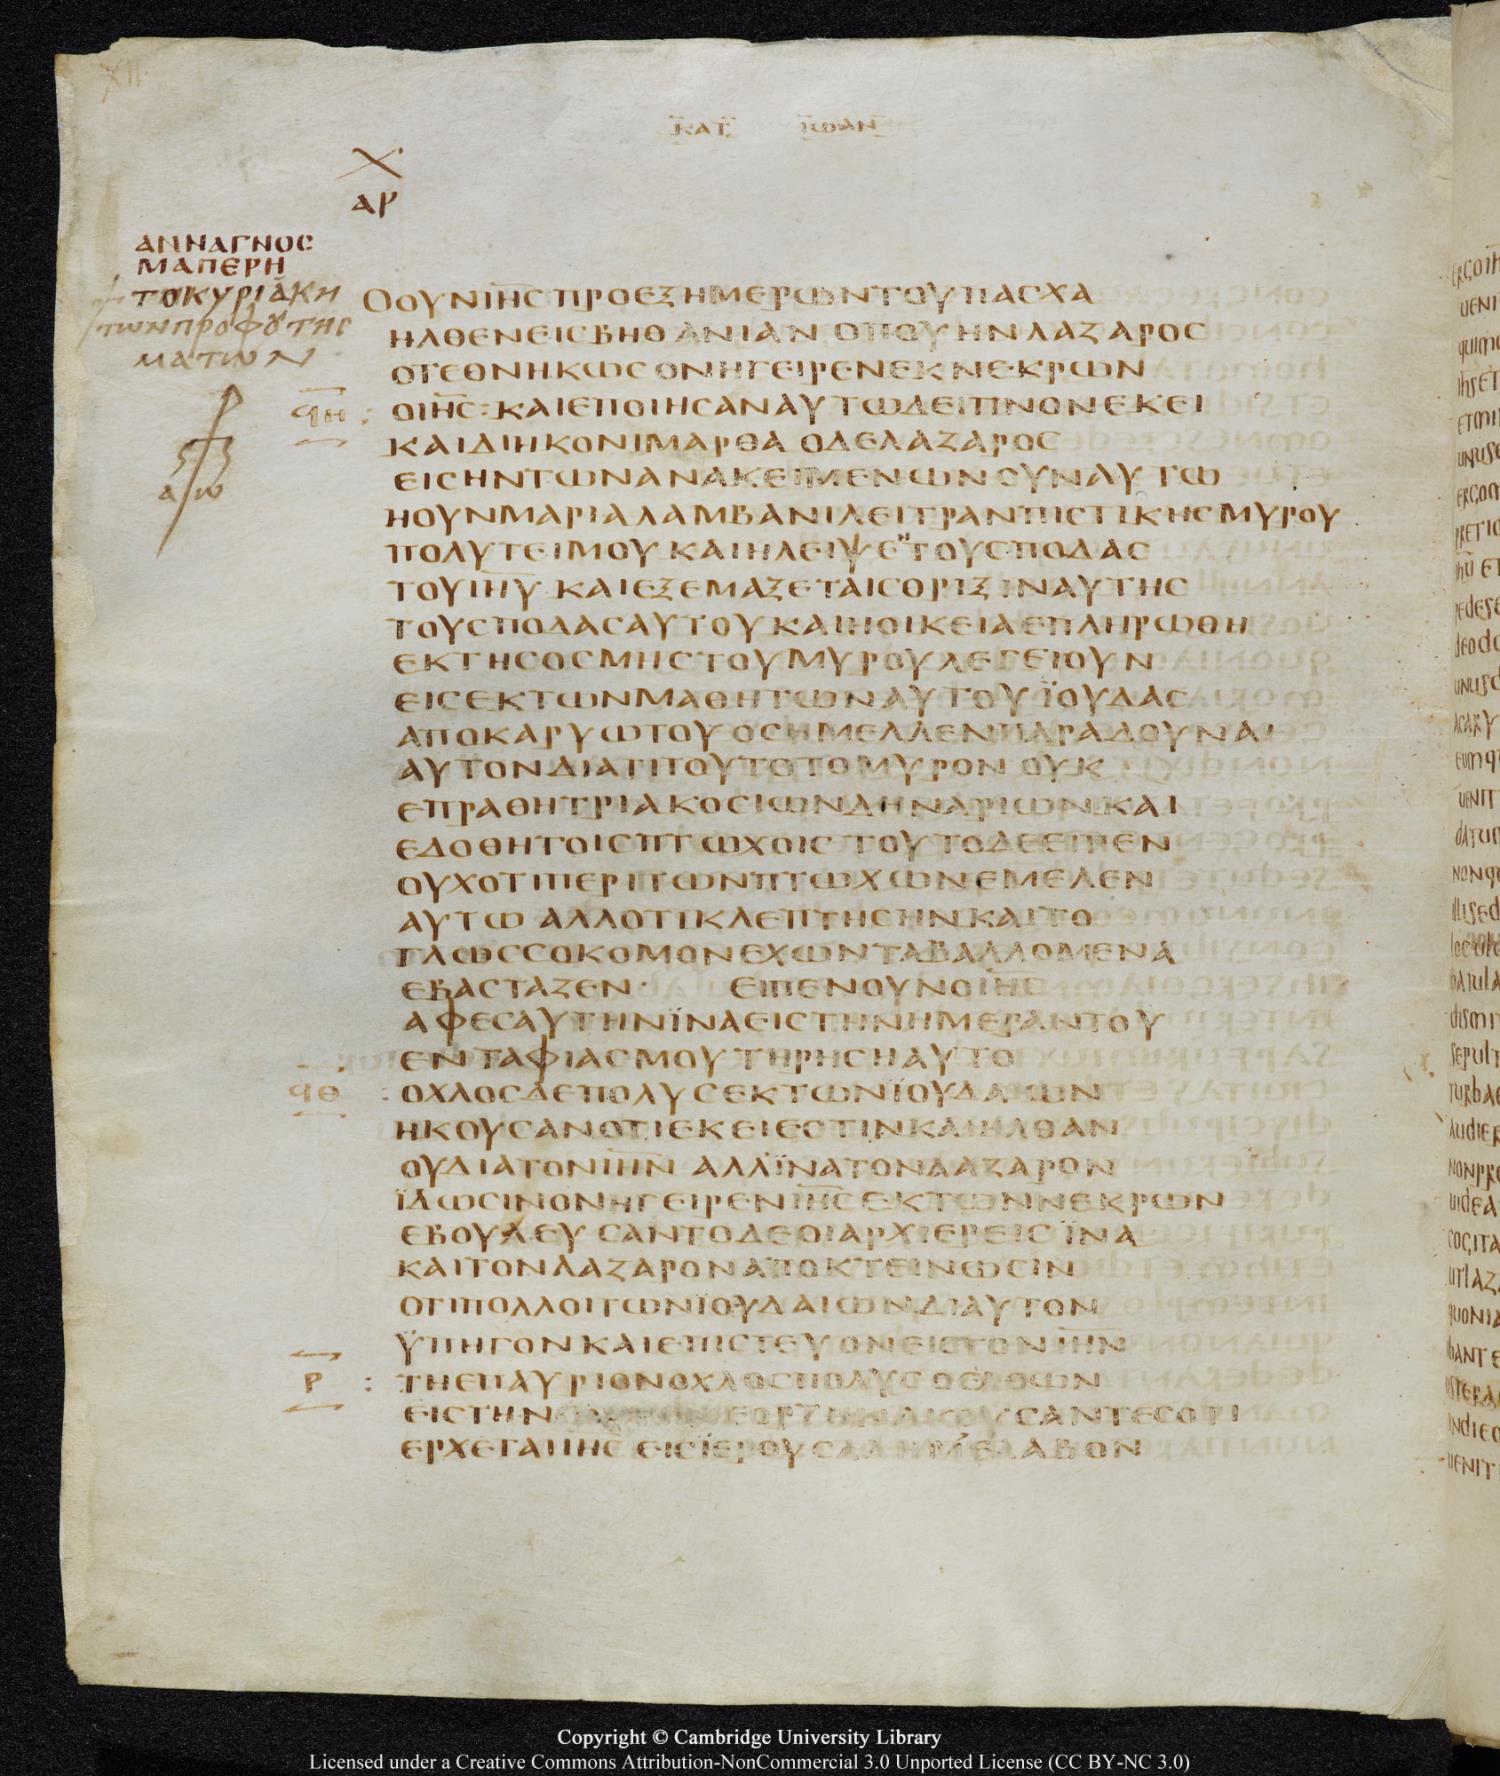 XII
ΚΑΤ ΙΩΑΝ
Χ
ΑΡ
ΑΝΝΑΓΝΟС
ΜΑΠΕΡΗ
ΤΟΚΥΡΙΑΚΗ
ΤΩΝΠΡΟΦΟΤΗС
ΜΑΤΩΝ
Α Ω
ΟΟΥΝΙΗС ΠΡΟΕΞΗΜΕΡΩΝΤΟΥΠΑСΧΑ
ΗΛΘΕΝΕΙСΒΗΘΑΝΙΑΝ ΟΠΟΥΗΝΛΑΖΑΡΟС
ΟΤΕΘΝΗΚΩС ΟΝΗΓΕΙΡΕΝΕΚΝΕΚΡΩΝ
ϤΗ : ΟΙΗС : ΚΑΙΕΠΟΙΗСΑΝΑΥΤΩΔΕΙΠΝΟΝΕΚΕΙ
ΚΑΙΔΙΗΚΟΝΙΜΑΡΘΑ ΟΔΕΛΑΖΑΡΟС
ΕΙСΗΝΤΩΝΑΝΑΚΕΙΜΕΝΩΝ СΥΝΑΥΤΩ
ΗΟΥΝΜΑΡΙΑΛΑΜΒΑΝΙΛΕΙΤΡΑΝΠΙСΤΙΚΗСΜΥΡΟΥ
ΠΟΛΥΤΕΙΜΟΥ ΚΑΙΗΛΕΙΨΕΝΤΟΥСΠΟΔΑС
ΤΟΥΙΗΥ ΚΑΙΕΞΕΜΑΞΕΤΑΙСΘΡΙΞΙΝΑΥΤΗС
ΤΟΥСΠΟΔΑСΑΥΤΟΥΚΑΙΗΟΙΚΕΙΑΕΠΛΗΡΩΘΗ
ΕΚΤΗСΟСΜΗСΤΟΥΜΥΡΟΥΛΕΓΕΙΟΥΝ
ΕΙСΕΚΤΩΝΜΑΘΗΤΩΝΑΥΤΟΥΪΟΥΔΑС
ΑΠΟΚΑΡΥΩΤΟΥ ΟСΗΜΕΛΛΕΝΠΑΡΑΔΟΥΝΑΙ
ΑΥΤΟΝΔΙΑΤΙΤΟΥΤΟΤΟΜΥΡΟΝ ΟΥΚ
ΕΠΡΑΘΗΤΡΙΑΚΟСΙΩΝΔΗΝΑΡΙΩΝΚΑΙ
ΕΔΟΘΗΤΟΙСΠΤΩΧΟΙС ΤΟΥΤΟΔΕΕΙΠΕΝ
ΟΥΧΟΤΙΠΕΡΙΤΩΝΠΤΩΧΩΝΕΜΕΛΕΝ
ΑΥΤΩ ΑΛΛΟΤΙΚΛΕΠΤΗСΗΝΚΑΙΤΟ
ΓΛΩССΟΚΟΜΟΝΕΧΩΝΤΑΒΑΛΛΟΜΕΝΑ
ΕΒΑСΤΑΖΕΝ· ΕΙΠΕΝΟΥΝΟΙΗС
ΑΦΕСΑΥΤΗΝΪΝΑΕΙСΤΗΝΗΜΕΡΑΝΤΟΥ
ΕΝΤΑΦΙΑСΜΟΥ ΤΗΡΗСΗΑΥΤΟ
ϤΘ : ΟΧΛΟСΔΕΠΟΛΥСΕΚΤΩΝΪΟΥΔΑΙΩΝ
ΗΚΟΥСΑΝΟΤΙΕΚΕΙΕСΤΙΝΚΑΙΗΛΘΑΝ
ΟΥΔΙΑΤΟΝΙΗΝ ΑΛΛΪΝΑΤΟΝΛΑΖΑΡΟΝ
ΪΔΩСΙΝΟΝΗΓΕΙΡΕΝΙΗСΕΚΤΩΝΝΕΚΡΩΝ
ΕΒΟΥΛΕΥСΑΝΤΟΔΕΟΙΑΡΧΙΕΡΕΙС ΪΝΑ
ΚΑΙΤΟΝΛΑΖΑΡΟΝΑΠΟΚΤΕΙΝΩСΙΝ
ΟΤΙΠΟΛΛΟΙΤΩΝΙΟΥΔΑΙΩΝΔΙΑΥΤΟΝ
ΫΠΗΓΟΝΚΑΙΕΠΙСΤΕΥΟΝΕΙСΤΟΝΙΗΝ
Ρ : ΤΗΕΠΑΥΡΙΟΝΟΧΛΟСΠΟΛΥС ΟΕΛΘΩΝ
ΕΙСΤΗΝ ΕΟΡΤΗΝΑΚΟΥСΑΝΤΕСΟΤΙ
ΕΡΧΕΤΑΙΙΗС ΕΙСΪΕΡΟΥСΑΛΗΜ ΕΛΑΒΟΝ
Copyright © Cambridge University Library
Licensed under a Creative Commons Attribution-NonCommercial 3.0 Unported License (CC BY-NC 3.0)